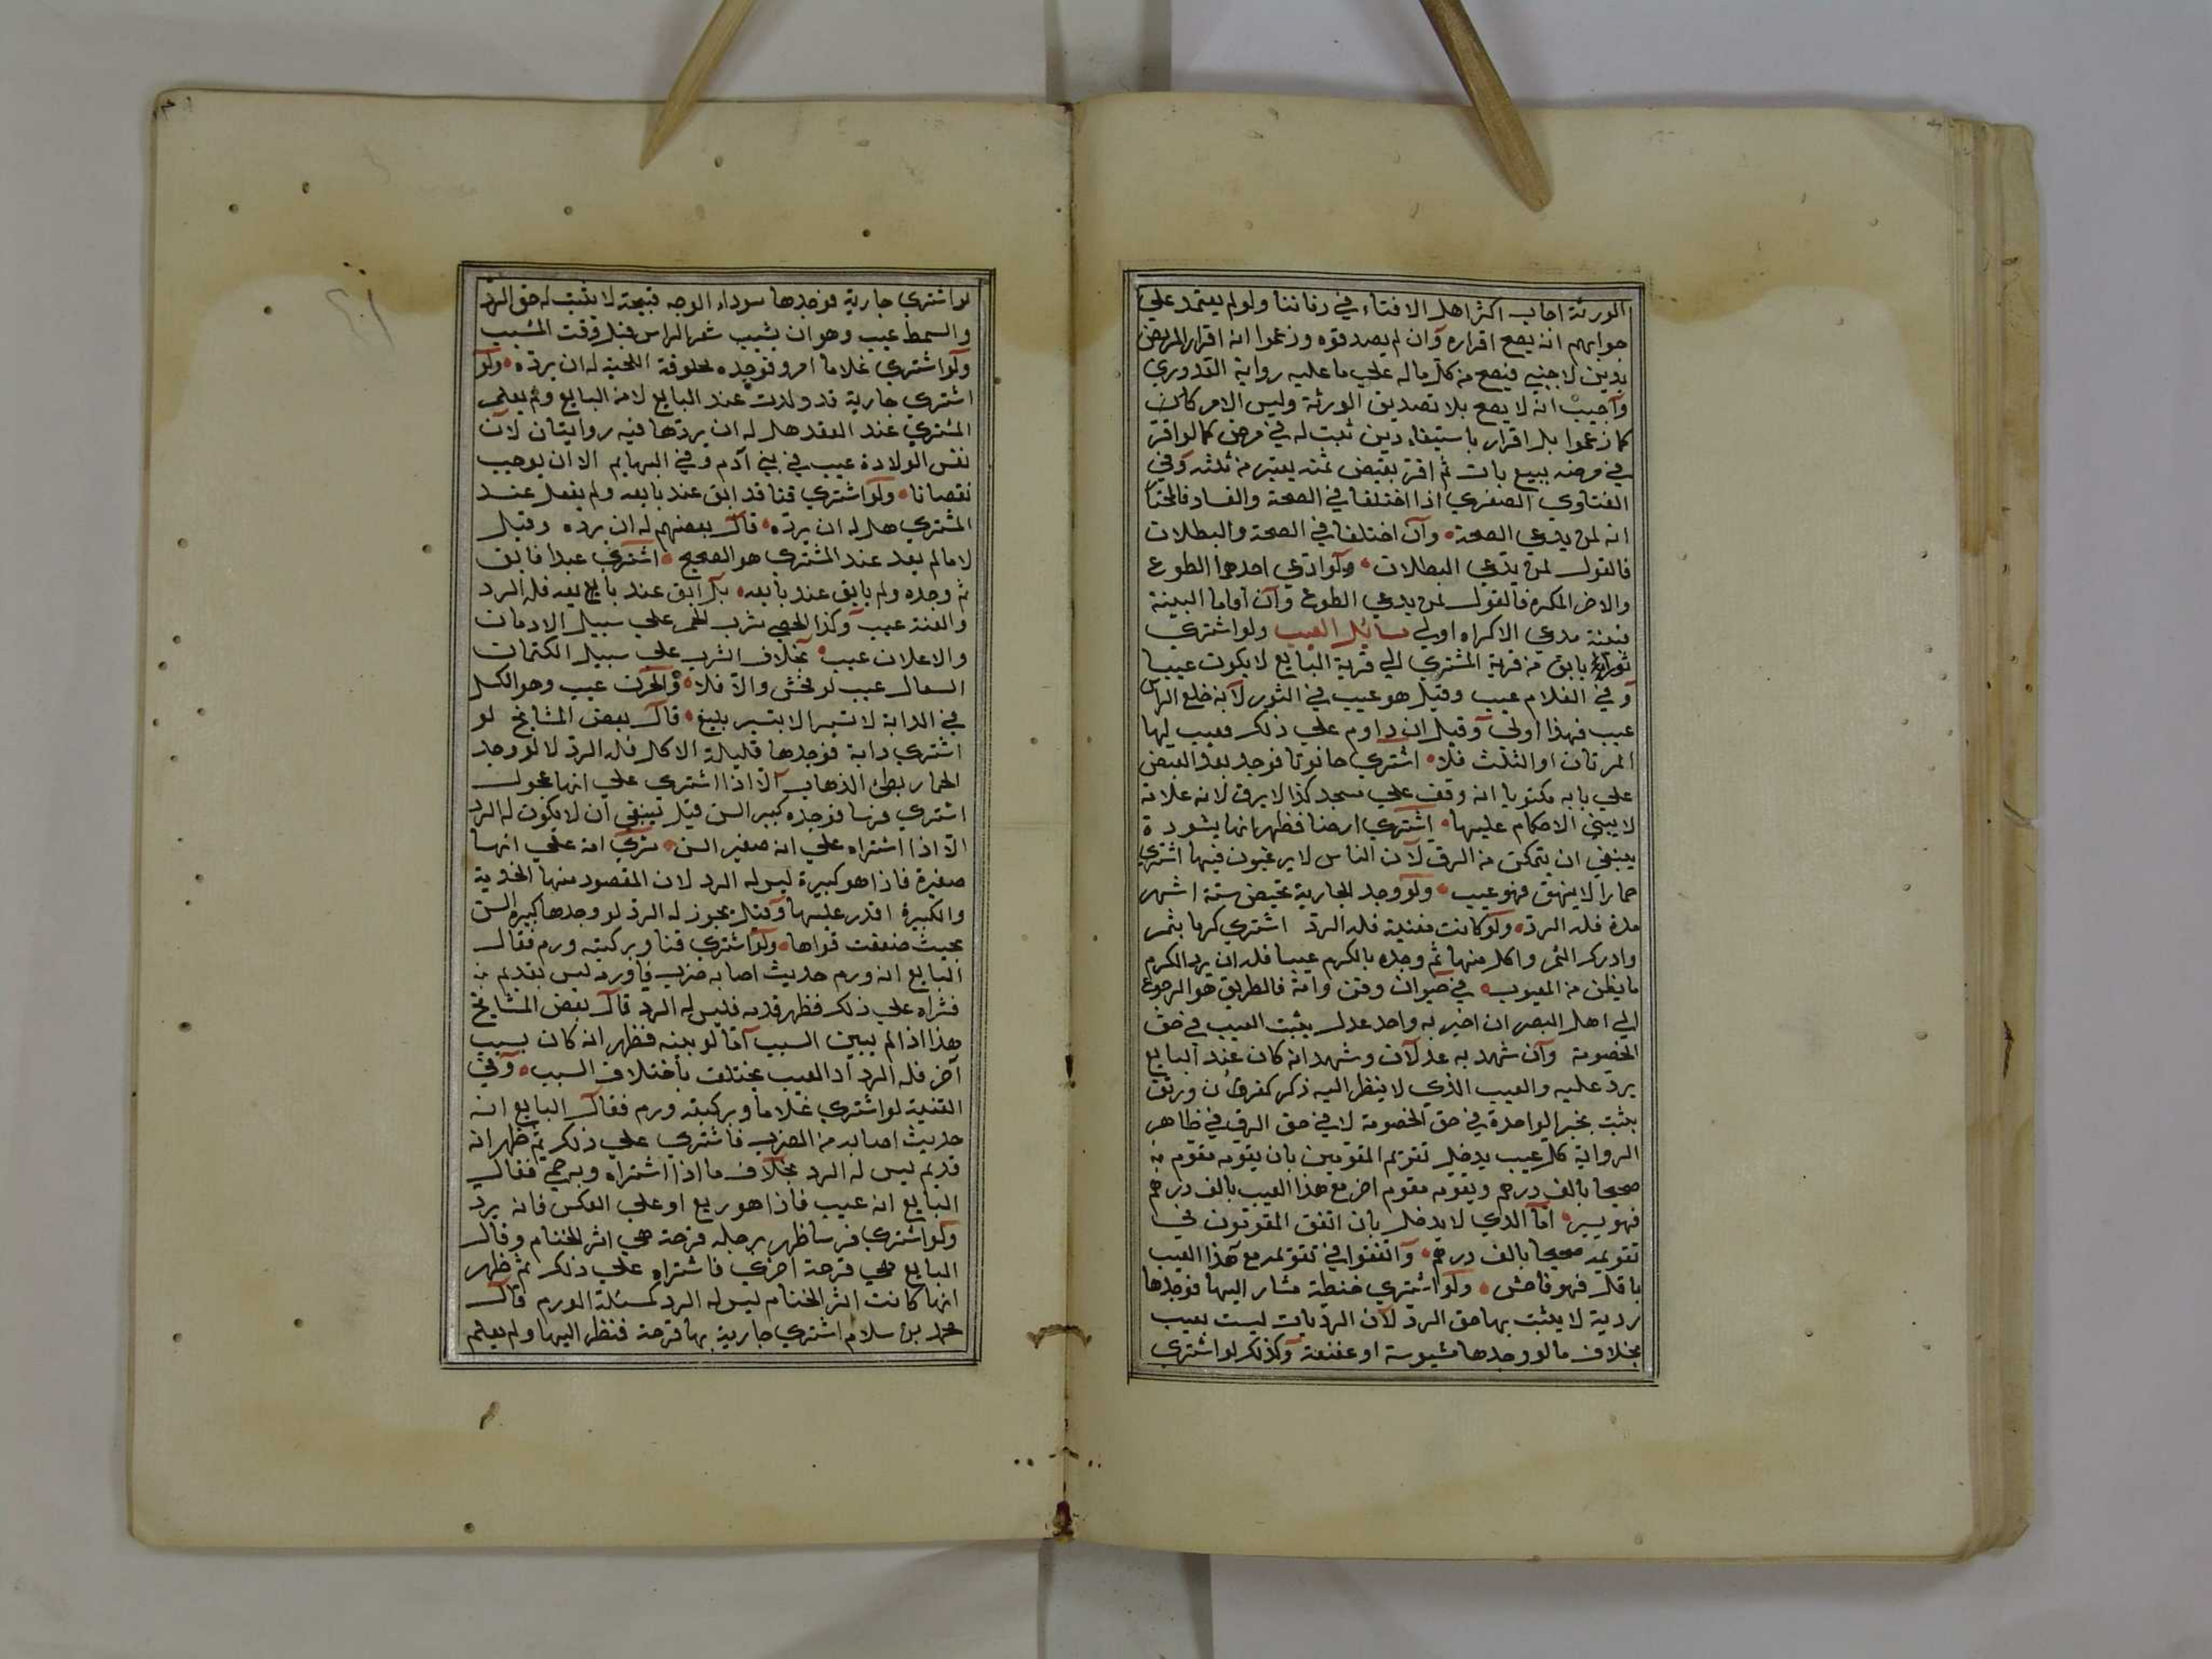 الورثة اجاب اكثر اهل الافتاء في زماننا ولو لم يعتمد علي
جوابهم انه يصح اقراره وان لم يصدقوه وزعموا انه اقرار المريض
بدين لاجنبي فيصح من كل ماله علي ما عليه رواية القدوري
وآجيب انه لا يصح بلا تصديق الورثة وليس الامر كائن
كما زعموا بل اقرار باستيفاء دين ثبت له في مرض كما لو اقر
في مرضه ببيع بات ثم اقر بقبض ثمنه يعتبر من ثلثه وفي
الفتاوي الصغري اذا اختلفا في الصحة والفساد فالمختا
انه لمن يدعي الصحة وآن اختلفا في الصحة والبطلان
فالقول لمن يدعي البطلان ولو ادعي احدهما الطوع
والاخر المكره فالقول لمن يدعي الطوع وآن اقاما البينة
فبينة مدعي الاكراه اولي مسائل العيب ولو اشتري
ثورا يابق من قرية المشتري الي قرية البايع لا يكون عيبا
وفي الغلام عيب وقيل هو عيب في الثور لآنه خلع الراس
عيب فهذا اولي وقيل ان داوم علي ذلك فعيب لها
المرتان او الثلث فلا اشتري حانوتا فوجد بعد القبض
علي بابه مكتوبا انه وقف علي مسجد كذا لا يرد لانه علامة
لا يبتني الاحكام عليها اشتري ارضا فظهر انها يشودة
ينبغي ان يتمكن من الرد لآن الناس لا يرغبون فيها اشتري
حمارا لا ينهق فهو عيب ولو وجد الجارية تحيض ستة اشهر
مدة فله الرد ولو كانت مغنية فله الرد اشتري كرما بثمر
وادرك الثمر واكل منها ثم وجده بالكرم عيبا فله ان يرد الكرم
ما يظن من العيوب في حيوان وقن وامة فالطريق هو الرجوع
الي اهل البصر ان اخبر به واحد عدل يثبت العيب في حق
الخصومة وآن شهد به عدلان وشهد انه كان عند البايع
يرد عليه والعيب الذي لا ينظر اليه ذكر كقرن ورتق
يثبت بخبر الواحدة في حق الخصومة لا في حق الرد في ظاهر
الرواية كل عيب يدخل تقويم المقومين بان يقومه مقوم
صحيحا بالف درهم ويقومه مقوم اخر مع هذا العيب بالف درهم
فهو يسير امآ الذي لا يدخل بان اتفق المقومون في
تقويمه صحيحا بالف درهم وآتفقوا في تقويمه مع هذا العيب
باقل فهو فاحش ولو اشتري حنطة مشار اليها فوجدها
ردية لا يثبت بها حق الرد لآن الرديات ليست بعيب
بخلاف ما لو وجدها مسوسة او عفنة وكذلك لو اشتري
لو اشتري جارية فوجدها سوداء الوجه قبيحة لا يثبت له حق الرد
والسمط عيب وهو ان يشيب شعر الراس قبل وقت المشيب
ولو اشتري غلاما امرد فوجده محلوقة اللحية له ان يرده ولو
اشتري جارية قد ولدت عند البايع لا من البايع ولم يعلم
المشتري عند العقد هل له ان يردها فيه روايتان لآن
نفس الولادة عيب في بني آدم وفي البهايم الا ان يوجب
نقصانا ولو اشتري قنا قد ابق عند بايعه ولم يفعل عند
المشتري هل له ان يرده قال بعضهم له ان يرده وقيل
لا ما لم يعد عند المشتري هو الصحيح اشتري عبدا فابق
ثم وجده ولم يابق عند بايعه بل ابق عند بايع بايعه فله الرد
والعنة عيب وكذا الخصي شرب الخمر علي سبيل الادمان
والاعلان عيب بخلاف الشرب علي سبيل الكتمان
السعال عيب لو فحش والآ فلا والحرن عيب وهو الكسل
في الدابة لا تسير الا بتسير بليغ قال بعض المشايخ لو
اشتري دابة فوجدها قليلة الاكل فله الرد لا لو وجد
الحمار بطئ الذهاب الآ اذا اشتري علي انها عجول
اشتري فرسا فوجده كبير السن قيل ينبغي ان لا يكون له الرد
الآ اذا اشتراه علي انه صغير السن شري امة علي انها
صغيرة فاذا هو كبيرة ليس له الرد لان المقصود منها الخدمة
والكبيرة اقدر عليها وقيل يجوز له الرد لو وجدها كبيرة السن
بحيث ضعفت قواها ولو اشتري قنا وبركبته ورم فقال
البايع انه ورم حديث اصابه ضرب فاورمه ليس بقديم
فشراه علي ذلك فظهر قدمه فليس له الرد قال بعض المشايخ
هذا اذا لم يبين السبب آما لو بينه فظهر انه كان بسبب
آخر فله الرد اذ العيب يختلف بآختلاف السبب وفي
القنية لو اشتري غلاما وبركبته ورم فقال البايع انه
حديث اصابه من الضرب فاشتري علي ذلك ثم ظهر انه
قديم ليس له الرد بخلاف ما اذا اشتراه وبه حمي فقال
البايع انه عيب فاذا هو ربع او علي العكس فانه يرد
ولو اشتري فرسا ظهر برجله قرحة هي اثر الختام وقال
البايع هي قرحة اخري فاشتراه علي ذلك ثم ظهر
انها كانت اثر الختام ليس له الرد كمسئلة الورم قال
محمد بن سلام اشتري جارية بها قرحة فنظر اليها ولم يعلم